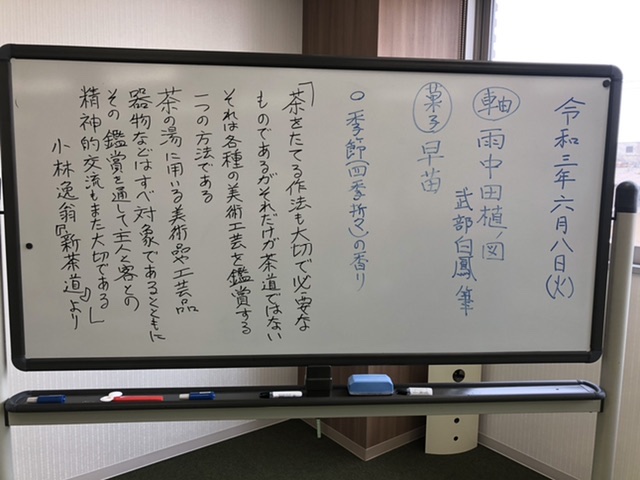 令和三年六月八日(火)
軸 雨中田植ノ図
武部白鳳筆
菓子 早苗
○季節(四季折々)の香り
「茶をたてる作法も大切で必要な
ものであるがそれだけが茶道ではない
それは各種の美術工芸を鑑賞する
一つの方法である
茶の湯に用いる美術品や工芸品
器物などはすべ対象であるとともに
その鑑賞を通して主人と客との
精神的交流もまた大切である」
小林逸翁『新茶道』より